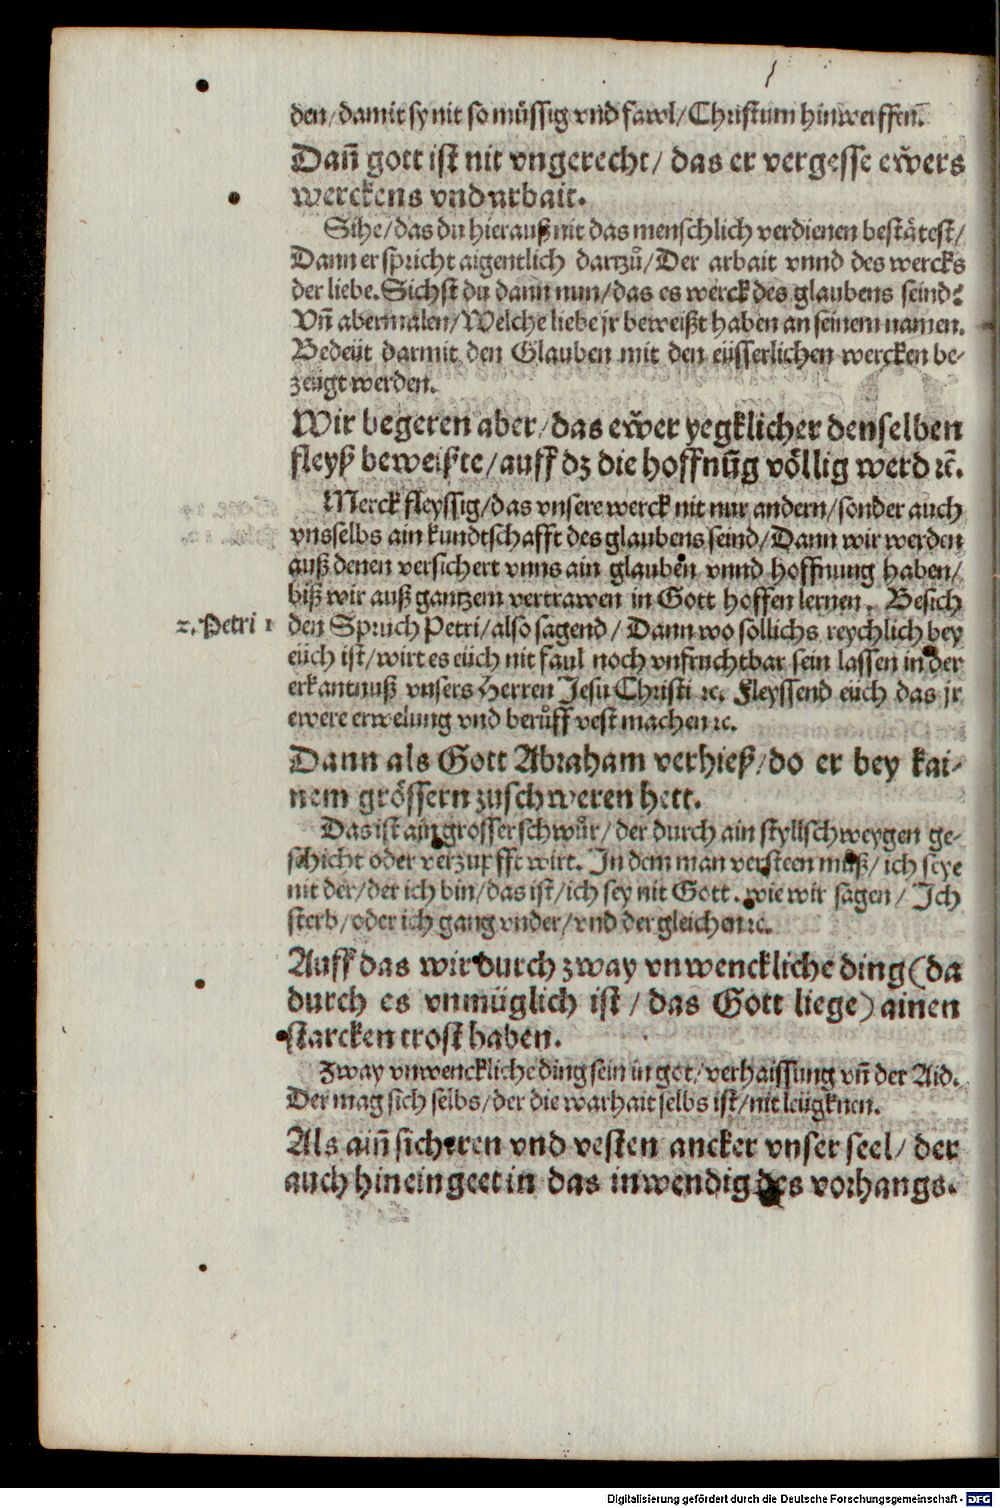 den/damit sy nit so müssig vnd fawl/Christum hinweiffen.
Dañ gott ist nit vngerecht/ das er vergesse ew̃ers
werckens vnd arbait.
Sihe/das du hierauß nit das menschlich verdienen bestätest/
Dann er spricht aigentlich dartzů/Der arbait vnnd des wercks
der liebe. Sichst du dann nun/das es werck des glaubens seind?
Vñ abermalen/Welche liebe jr beweißt haben an seinem namen.
Bedeüt darmit den Glauben mit den eüsserlichen wercken be-
zeügt werden.
Wir begeren aber/das ew̃er yegklicher denselben
fleyß beweißte/auff dz die hoffnũg völlig werd ꝛc̃.
Merck fleyssig/das vnsere werck nit nur andern/sonder auch
vnsselbs ain kundtschafft des glaubens seind/Dann wir werden
auß denen versichert vnns ain glauben vnnd hoffnung haben/
biß wir auß gantzem vertrawen in Gott hoffen lernen. Besich
2. Petri 1
den Spruch Petri/also sagend/Dann wo sollichs reychlich bey
eüch ist/wirt es eüch nit faul noch vnfruchtbar sein lassen in der
erkantnuß vnsers Herren Jesu Christi ꝛc. Fleyssend eüch das jr
ewere erwelung vnd berůff vest machen ꝛc.
Dann als Gott Abraham verhieß/do er bey kai-
nem grössern zuschweren hett.
Das ist ain grosser schwůr/der durch ain styllschweygen ge-
schicht oder verzupfft wirt. In dem man versteen můß/ich seye
nit der/der ich bin/das ist/ich sey nit Gott. wie wir sagen/ Ich
sterb/oder ich gang vnder/vnd der gleichen ꝛc.
Auff das wir durch zway vnwenckliche ding(da
durch es vnmüglich ist/das Gott liege)ainen
starcken trost haben.
Zway vnwenckliche ding sein in got/verhaissung vñ der Aid.
Der mag sich selbs/der die warhait selbs ist/nit leügknen.
Als ainñ sicheren vnd vesten ancker vnser seel/der
auch hinein geet in das inwendig des vorhangs.
Digitalisierung gefördert durch die Deutsche Forschungsgemeinschaft - DFG